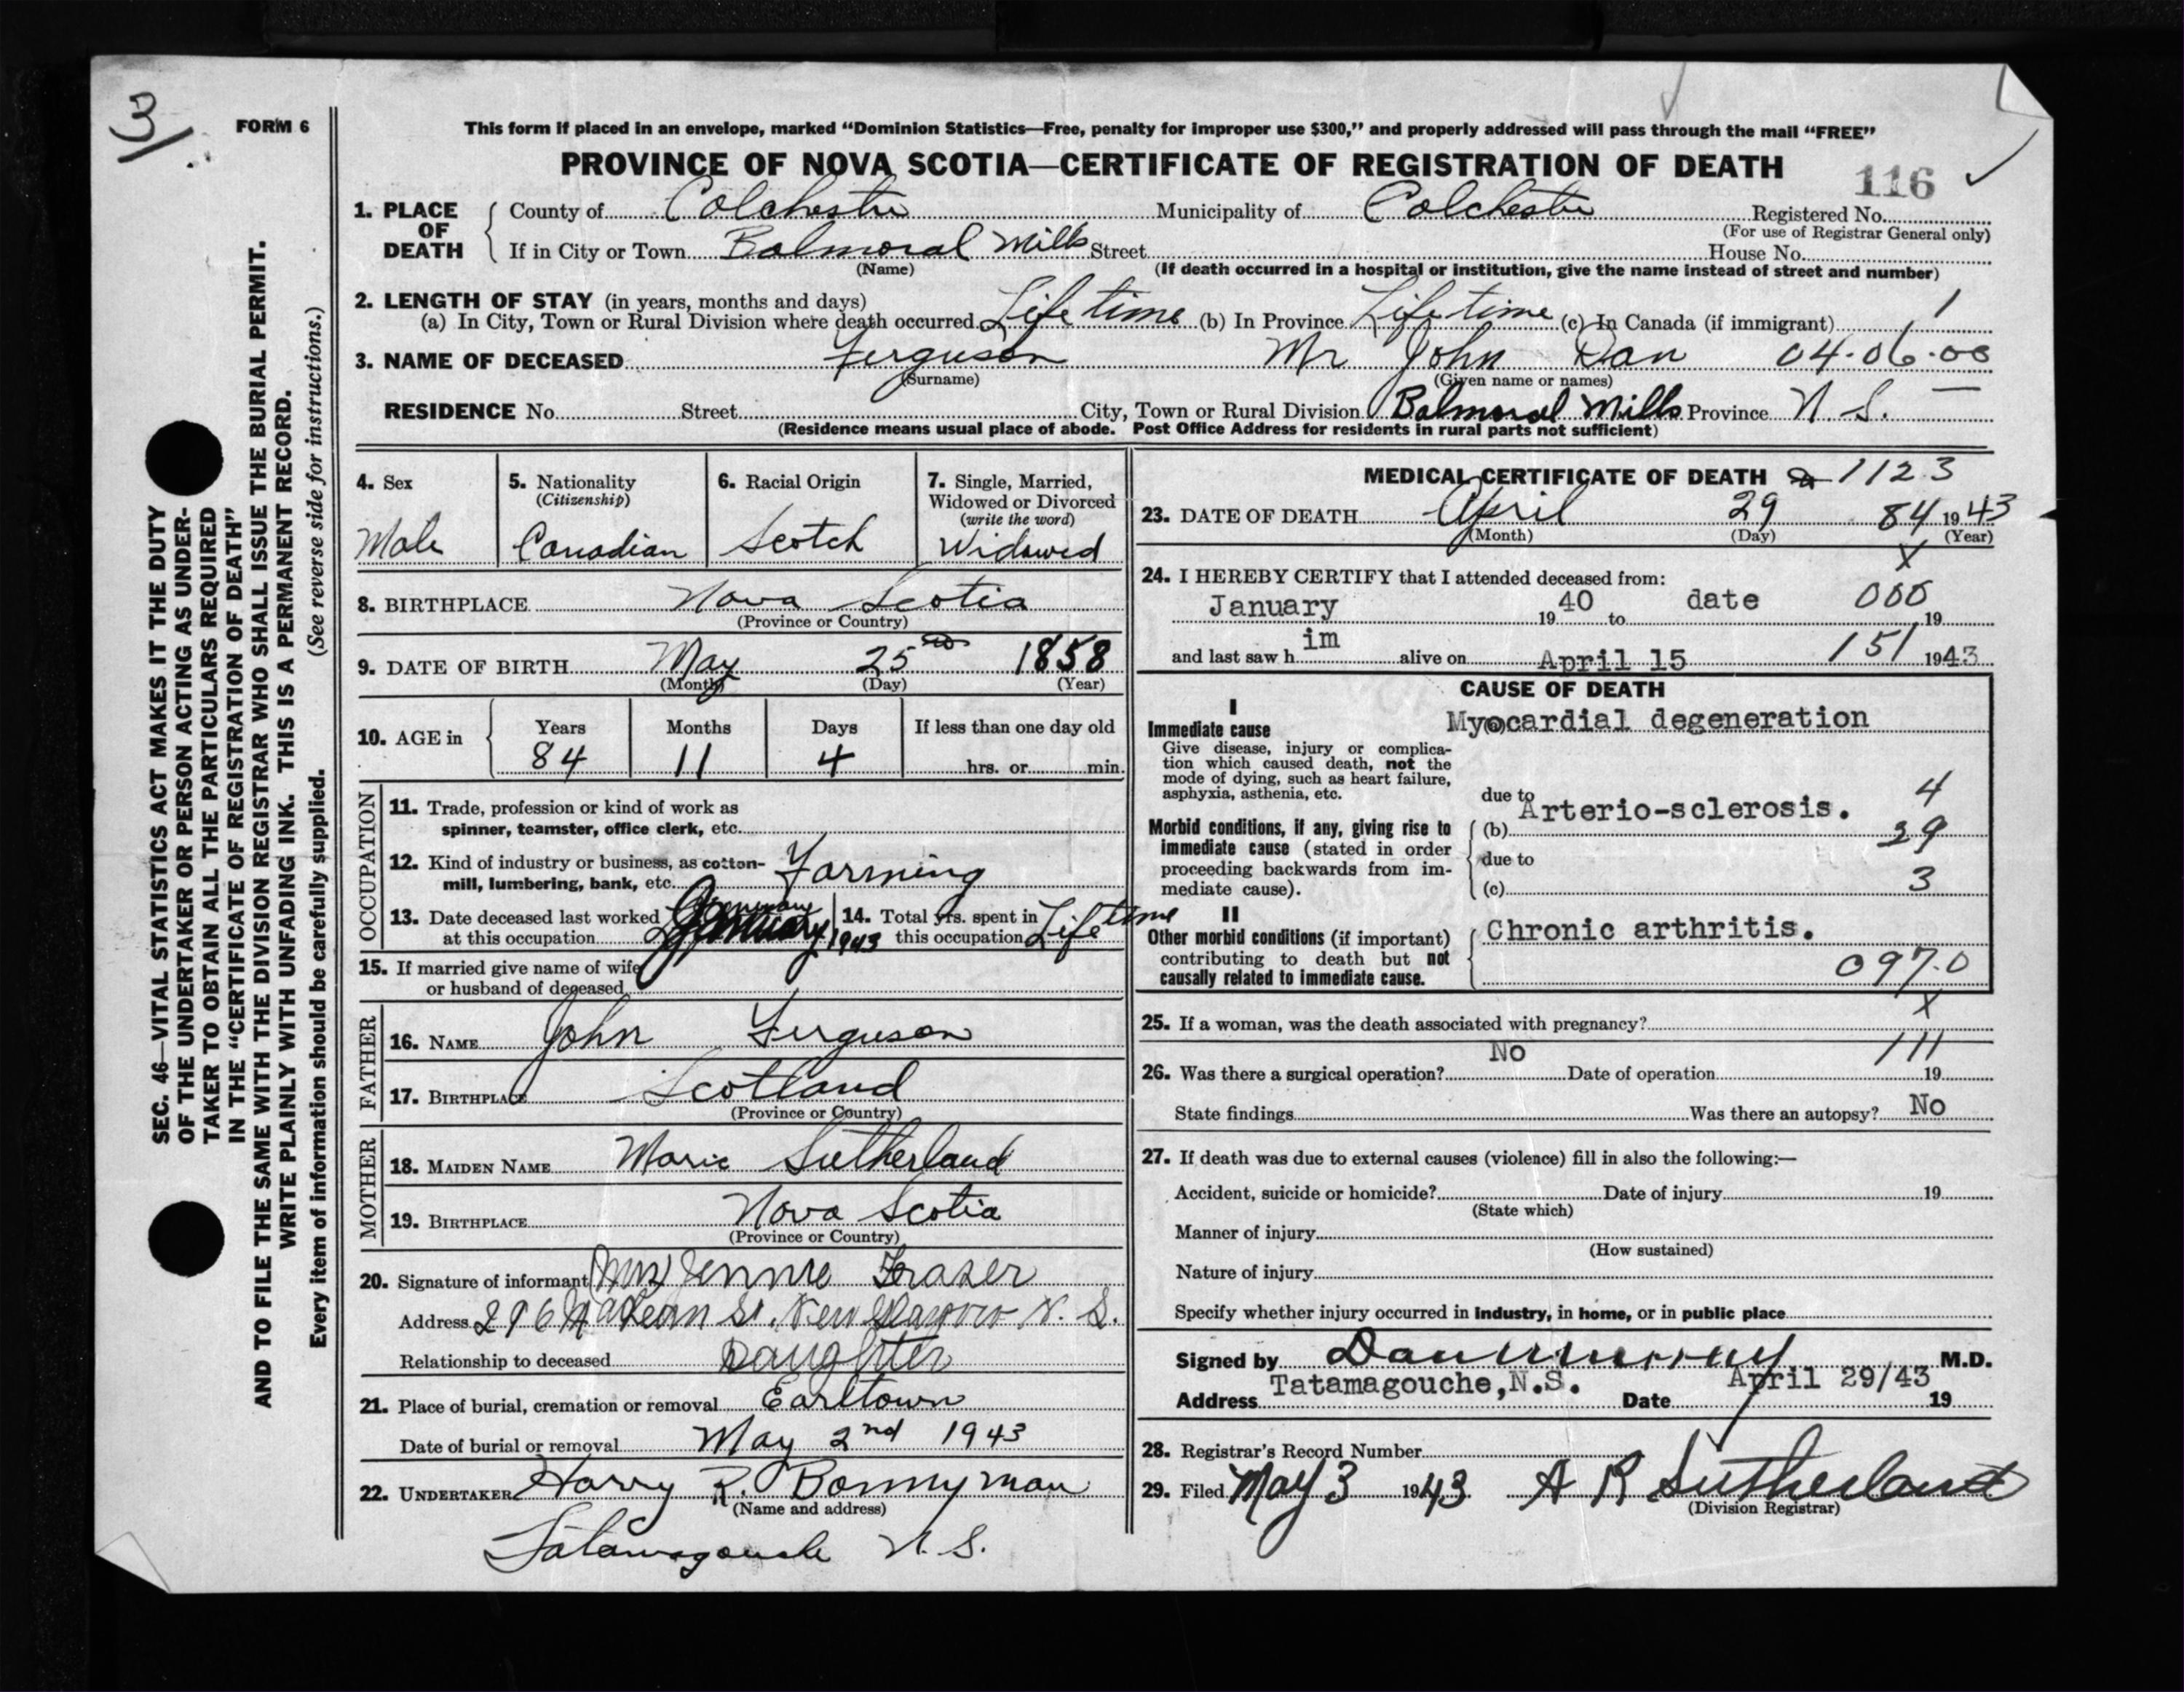 3
FORM 6
This form if placed in an envelope, marked “Dominion Statistics—Free, penalty for improper use $300,” and properly addressed will pass through the mail “FREE”
PROVINCE OF NOVA SCOTIA—CERTIFICATE OF REGISTRATION OF DEATH
116
SEC. 46—VITAL STATISTICS ACT MAKES IT THE DUTY
OF THE UNDERTAKER OR PERSON ACTING AS UNDER-
TAKER TO OBTAIN ALL THE PARTICULARS REQUIRED
IN THE “CERTIFICATE OF REGISTRATION OF DEATH”
AND TO FILE THE SAME WITH THE DIVISION REGISTRAR WHO SHALL ISSUE THE BURIAL PERMIT.
WRITE PLAINLY WITH UNFADING INK. THIS IS A PERMANENT RECORD.
Every item of information should be carefully supplied. (See reverse side for instructions.)
1. PLACE OF DEATH
County of Colchester Municipality of Colchester Registered No.
(For use of Registrar General only)
If in City or Town Balmoral Mills Street House No.
(Name) (If death occurred in a hospital or institution, give the name instead of street and number)
2. LENGTH OF STAY (in years, months and days)
(a) In City, Town or Rural Division where death occurred Life time (b) In Province Life time (c) In Canada (if immigrant) 1
3. NAME OF DECEASED Ferguson Mr John Dan 04.06.00
(Surname) (Given name or names)
RESIDENCE No. Street City, Town or Rural Division Balmoral Mills Province N S. —
(Residence means usual place of abode. Post Office Address for residents in rural parts not sufficient)
4. Sex
Male
5. Nationality
(Citizenship)
Canadian
6. Racial Origin
Scotch
7. Single, Married,
Widowed or Divorced
(write the word)
Widowed
8. BIRTHPLACE Nova Scotia
(Province or Country)
9. DATE OF BIRTH May 25 1858
(Month) (Day) (Year)
10. AGE in
Years Months Days If less than one day old
84 11 4 hrs. or min.
OCCUPATION
11. Trade, profession or kind of work as
spinner, teamster, office clerk, etc.
12. Kind of industry or business, as cotton-
mill, lumbering, bank, etc. Farming
13. Date deceased last worked
at this occupation January 1943
14. Total yrs. spent in
this occupation Life time
15. If married give name of wife
or husband of deceased
FATHER
16. NAME John Ferguson
17. BIRTHPLACE Scotland
(Province or Country)
MOTHER
18. MAIDEN NAME Marie Sutherland
19. BIRTHPLACE Nova Scotia
(Province or Country)
20. Signature of informant (Mrs) Jennie Fraser
Address 296 MacLean St. New Glasgow N. S.
Relationship to deceased Daughter
21. Place of burial, cremation or removal Earltown
Date of burial or removal May 2nd 1943
22. UNDERTAKER Harry R. Bonnyman
(Name and address)
Tatamagouche N. S.
MEDICAL CERTIFICATE OF DEATH 1123
23. DATE OF DEATH April 29 84 1943
(Month) (Day) (Year)
X
24. I HEREBY CERTIFY that I attended deceased from:
January 1940 to date 000 19
and last saw him alive on April 15 151 1943
CAUSE OF DEATH
I
Immediate cause Myocardial degeneration
Give disease, injury or complica-
tion which caused death, not the
mode of dying, such as heart failure,
asphyxia, asthenia, etc.
Morbid conditions, if any, giving rise to
immediate cause (stated in order
proceeding backwards from im-
mediate cause).
due to 4
(b) Arterio-sclerosis. 29
due to
(c) 3
II
Other morbid conditions (if important)
contributing to death but not
causally related to immediate cause.
Chronic arthritis.
097.0
X
25. If a woman, was the death associated with pregnancy?
111
26. Was there a surgical operation? No Date of operation 19
State findings Was there an autopsy? No
27. If death was due to external causes (violence) fill in also the following:—
Accident, suicide or homicide? Date of injury 19
(State which)
Manner of injury
(How sustained)
Nature of injury
Specify whether injury occurred in industry, in home, or in public place
Signed by Dan Murray M.D.
Address Tatamagouche, N.S. Date April 29/43 19
28. Registrar's Record Number
29. Filed May 3 1943 A R Sutherland
(Division Registrar)